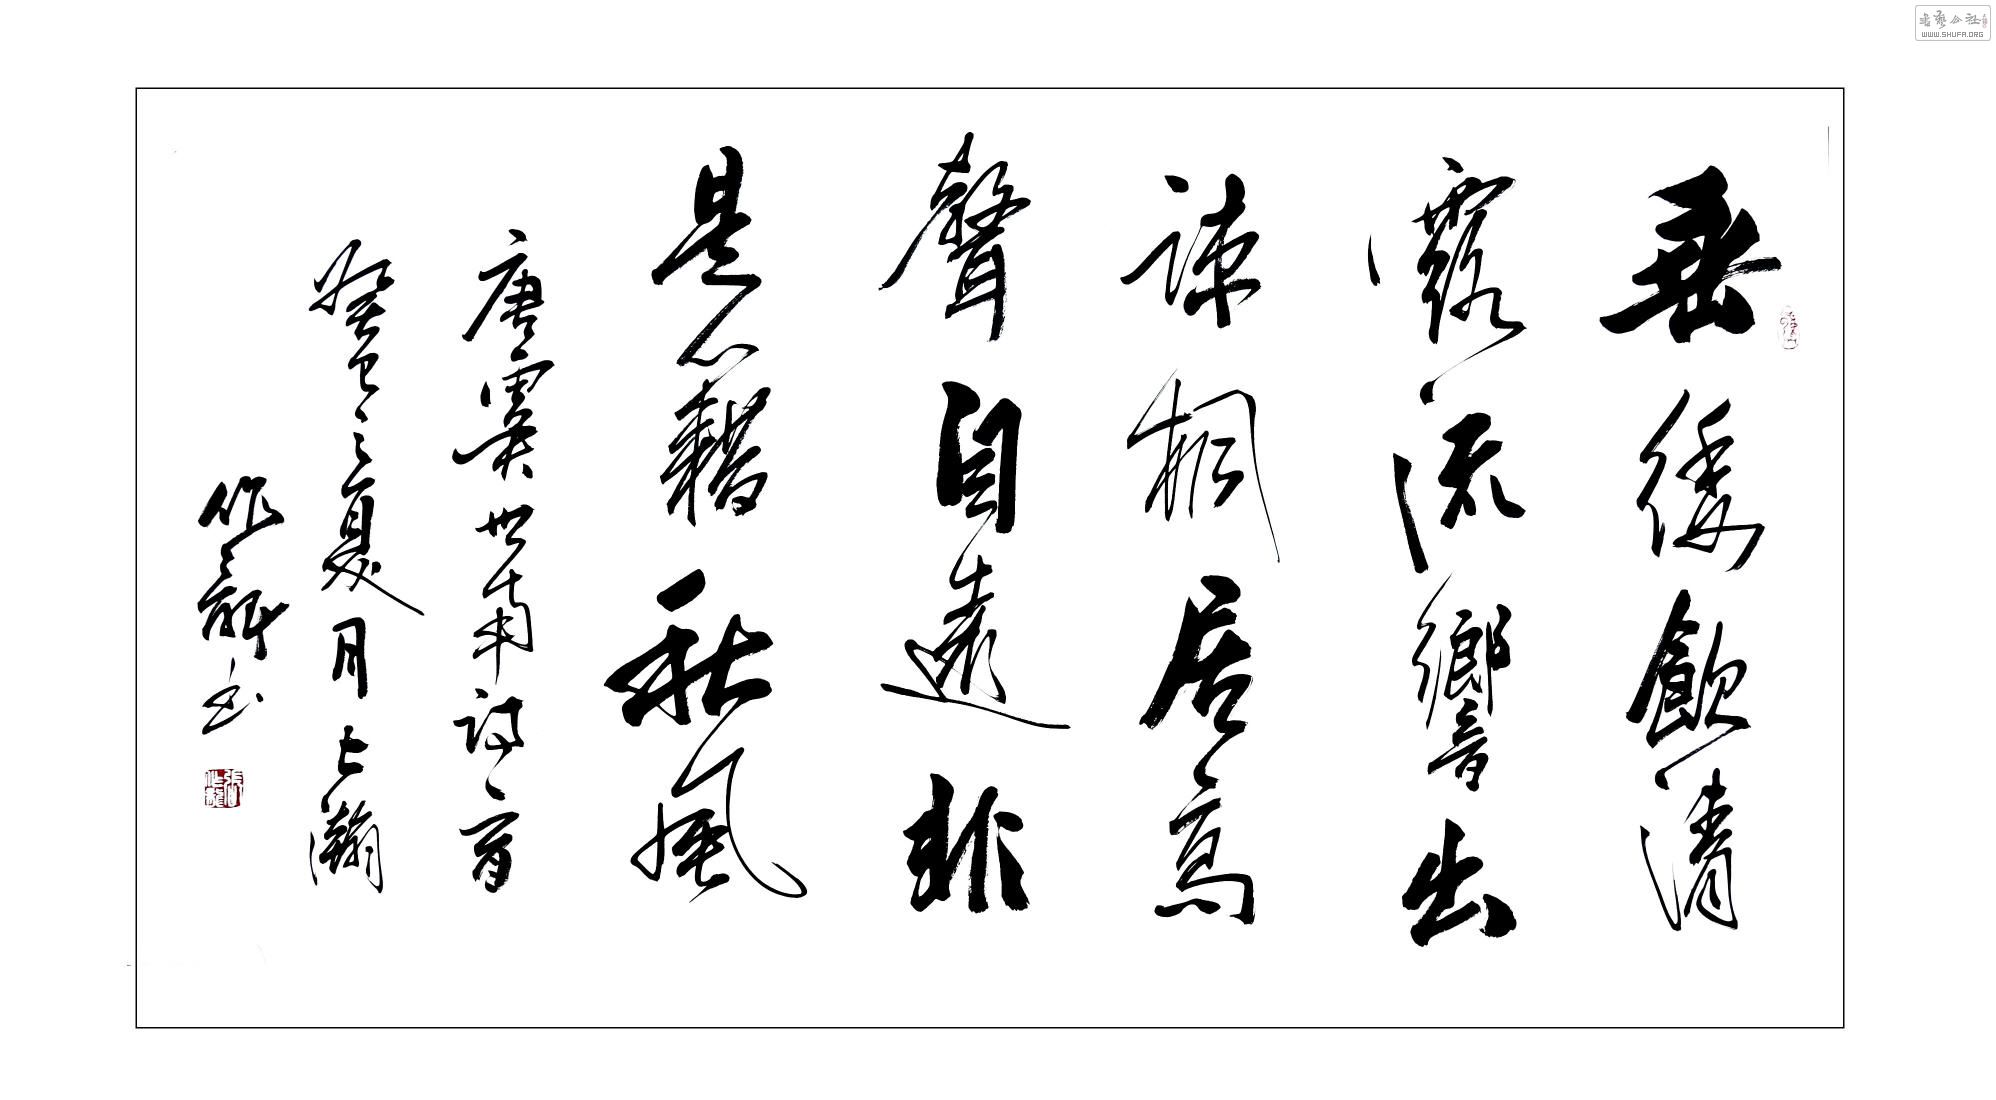 垂緌飲清
露流響出
疎桐居高
聲自遠非
是藉秋風
唐虞世南詩一首
癸巳之夏月上瀚
作 书
書藝公社
WWW.SHUFA.ORG